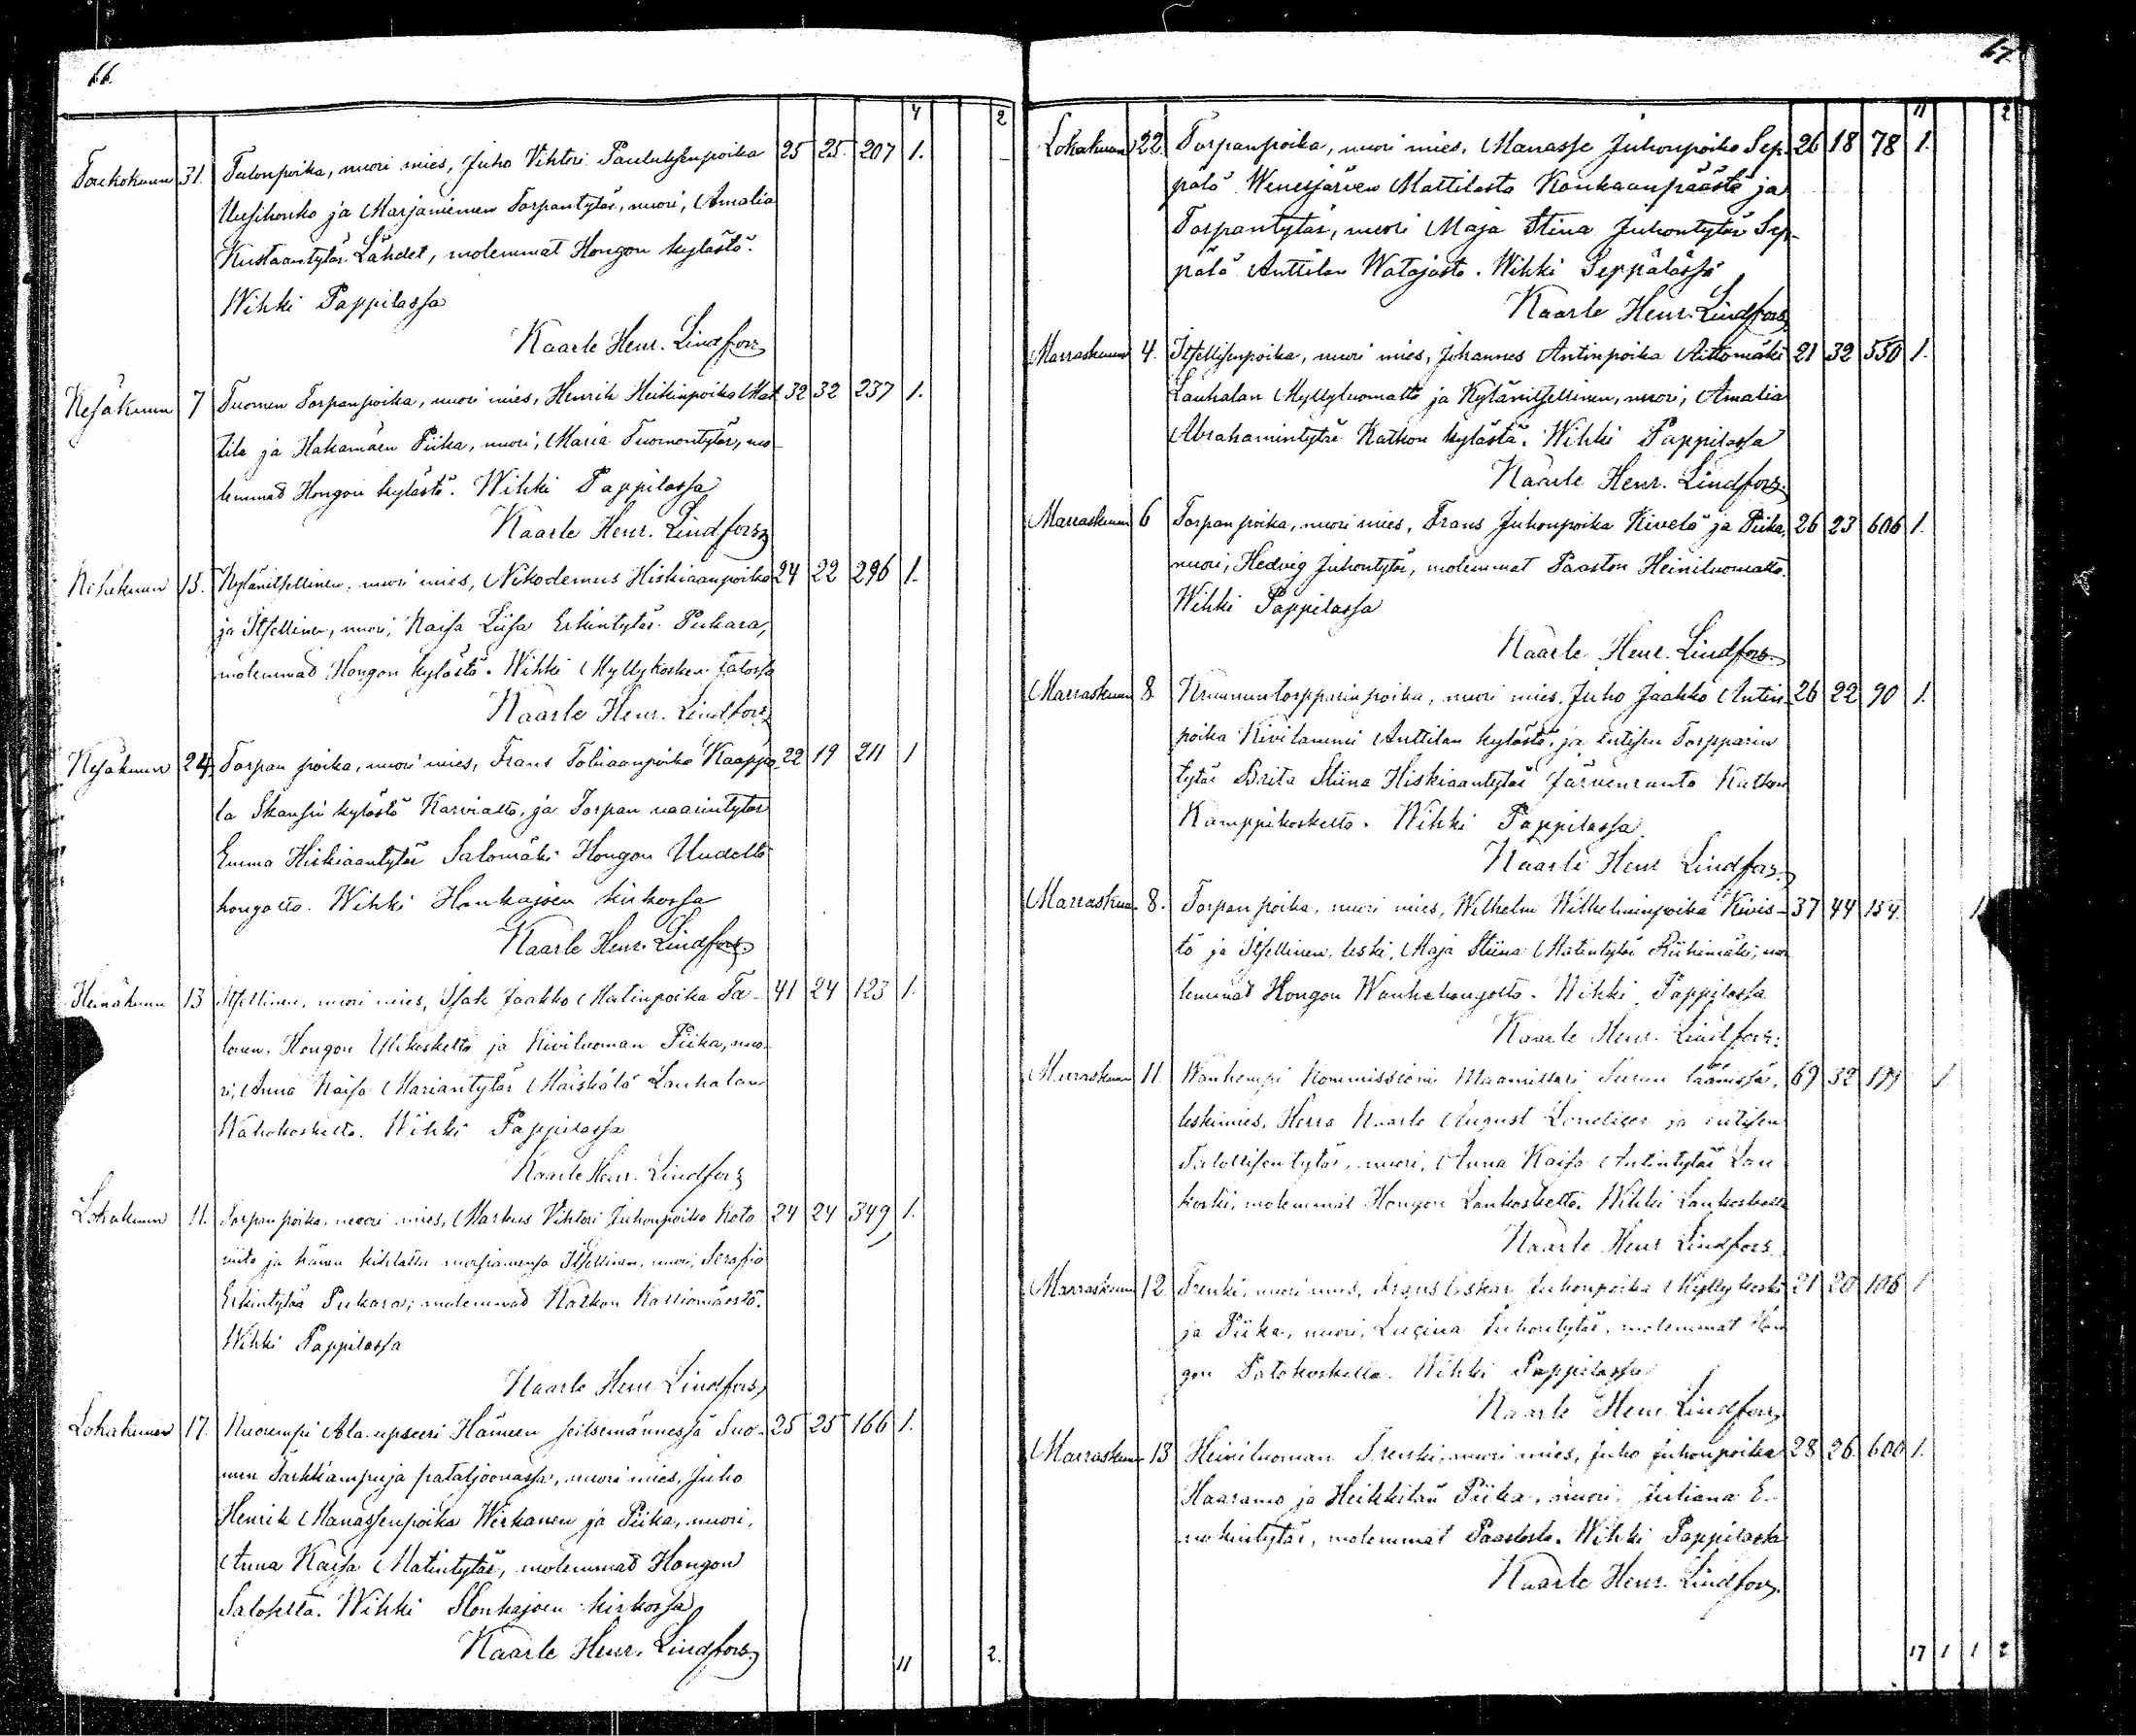 66.
4 2
Toukokuun 31. Talonpoika, nuori mies, Juho Vihtori Paulusenpoika 25 25 207 1.
Uusihonko ja Marjaniemen Torpantytär, nuori, Amalia
Kustaantytär Lähdet, molemmat Hongon kylästä.
Wihki Pappilassa
Kaarle Henr. Lindfors
Kesäkuun 7 Tuomen Torpanpoika, nuori mies, Henrik Heikinpoika Mat 32 32 237 1.
tila ja Hakamäen Piika, nuori, Maria Tuomontytär, mo
lemmat Hongon kylästä. Wihki Pappilassa
Kaarle Henr. Lindfors
Kesäkuun 15. Kylänitsellinen, nuori mies, Nikodemus Hiskiaanpoika 24 22 296 1.
ja Itsellinen, nuori, Kaisa Liisa Erkintytär Pukara,
molemmat Hongon kylästä. Wihki Myllykosken talossa
Kaarle Henr. Lindfors
Kesäkuun 24. Torpan poika, nuori mies, Frans Tobiaanpoika Kaappo 22 19 211 1
la Skansin kylästä Karvialta, ja Torpan vaarintytär
Emma Hiskiaantytär Salomäki Hongon Uudelta
hongolta. Wihki Honkajoen kirkossa
Kaarle Henr. Lindfors
Heinäkuun 13 Itsellinen, nuori mies, Isak Jaakko Matinpoika Ta- 41 24 123 1.
lonen, Hongon Ylikoskelta ja Kiviluoman Piika, nuo-
ri, Anna Kaisa Mariantytär Mäiskälä Lauhalan
Wähäkoskelta. Wihki Pappilassa
Kaarle Henr. Lindfors
Lokakuun 11. Torpanpoika, nuori mies, Markus Vihtori Juhonpoika Koto 24 24 349 1.
niitu ja hänen kihlattu morsiamensa Itsellinen, nuori, Serafia
Erkintytär Pukara, molemmat Katkon Kalliomäestä.
Wihki Pappilassa
Kaarle Henr. Lindfors
Lokakuun 17. Nuorempi Ala-upseeri Hämeen seitsemännessä Suo- 25 25 166 1.
men Tarkk'ampuja pataljoonassa, nuori mies, Juho
Henrik Manassenpoika Wirkanen ja Piika, nuori,
Anna Kaisa Matintytär, molemmat Hongon
Salosella. Wihki Honkajoen kirkossa
Kaarle Henr. Lindfors
11 2.
67.
11 2
Lokakuun 22. Torpanpoika, nuori mies, Manasse Juhonpoika Sep- 26 18 78 1.
pälä Wenesjärven Mattilasta Kankaanpäästä ja
Torpantytär, nuori Maja Stina Juhontytär Sep-
pälä Anttilan Watajasta. Wihki Seppälässä
Kaarle Henr. Lindfors
Marraskuun 4. Itsellisenpoika, nuori mies, Johannes Antinpoika Aittomäki 21 32 550 1.
Lauhalan Myllyluomalta ja Kylänitsellinen, nuori, Amalia
Abrahamintytär Katkon kylästä. Wihki Pappilassa
Kaarle Henr. Lindfors
Marraskuun 6 Torpan poika, nuori mies, Frans Juhonpoika Kivelä ja Piika, 26 23 606 1.
nuori, Hedvig Juhontytär, molemmat Paaston Heiniluomalta.
Wihki Pappilassa
Kaarle Henr. Lindfors
Marraskuun 8. Kruununtorpparin poika, nuori mies, Juho Jaakko Antin- 26 22 90 1.
poika Kivilammi Anttilan kylästä, ja entisen Torpparin
tytär Brita Stiina Hiskiaantytär Järvenranta Katkon
Kamppikoskelta. Wihki Pappilassa
Kaarle Henr Lindfors
Marraskuun 8. Torpan poika, nuori mies, Wilhelm Wilhelminpoika Kivis- 37 44 154. 1
tö ja Itsellinen, leski, Maja Stiina Matintytär Riihimäki, mo
lemmat Hongon Wanhahongolta. Wihki Pappilassa
Kaarle Henr. Lindfors
Marraskuun 11. Wanhempi Kommissioni Maamittari Turun läänissä, 69 32 191 1
leskimies, Herra Kaarle August ja entisen
Talollisen tytär, nuori, Anna Kaisa Antintytär Lau
koski, molemmat Hongon Laukoskelta. Wihki Laukoskella
Kaarle Henr Lindfors
Marraskuun 12 Trenki, nuori mies, Frans Oskar Juhonpoika Myllykoski 21 20 106 1
ja Piika, nuori, Lusina Juhontytär, molemmat Hon
gon Patokoskella. Wihki Pappilassa
Kaarle Henr. Lindfors
Marraskuun 13 Heiniluoman Trenki, nuori mies, Juho Juhonpoika 28 26 600 1.
Haaramo ja Heikkilän Piika, nuori, Juliana E-
nokintytär, molemmat Paastosta. Wihki Pappilassa
Kaarle Henr. Lindfors
17 1 1 2